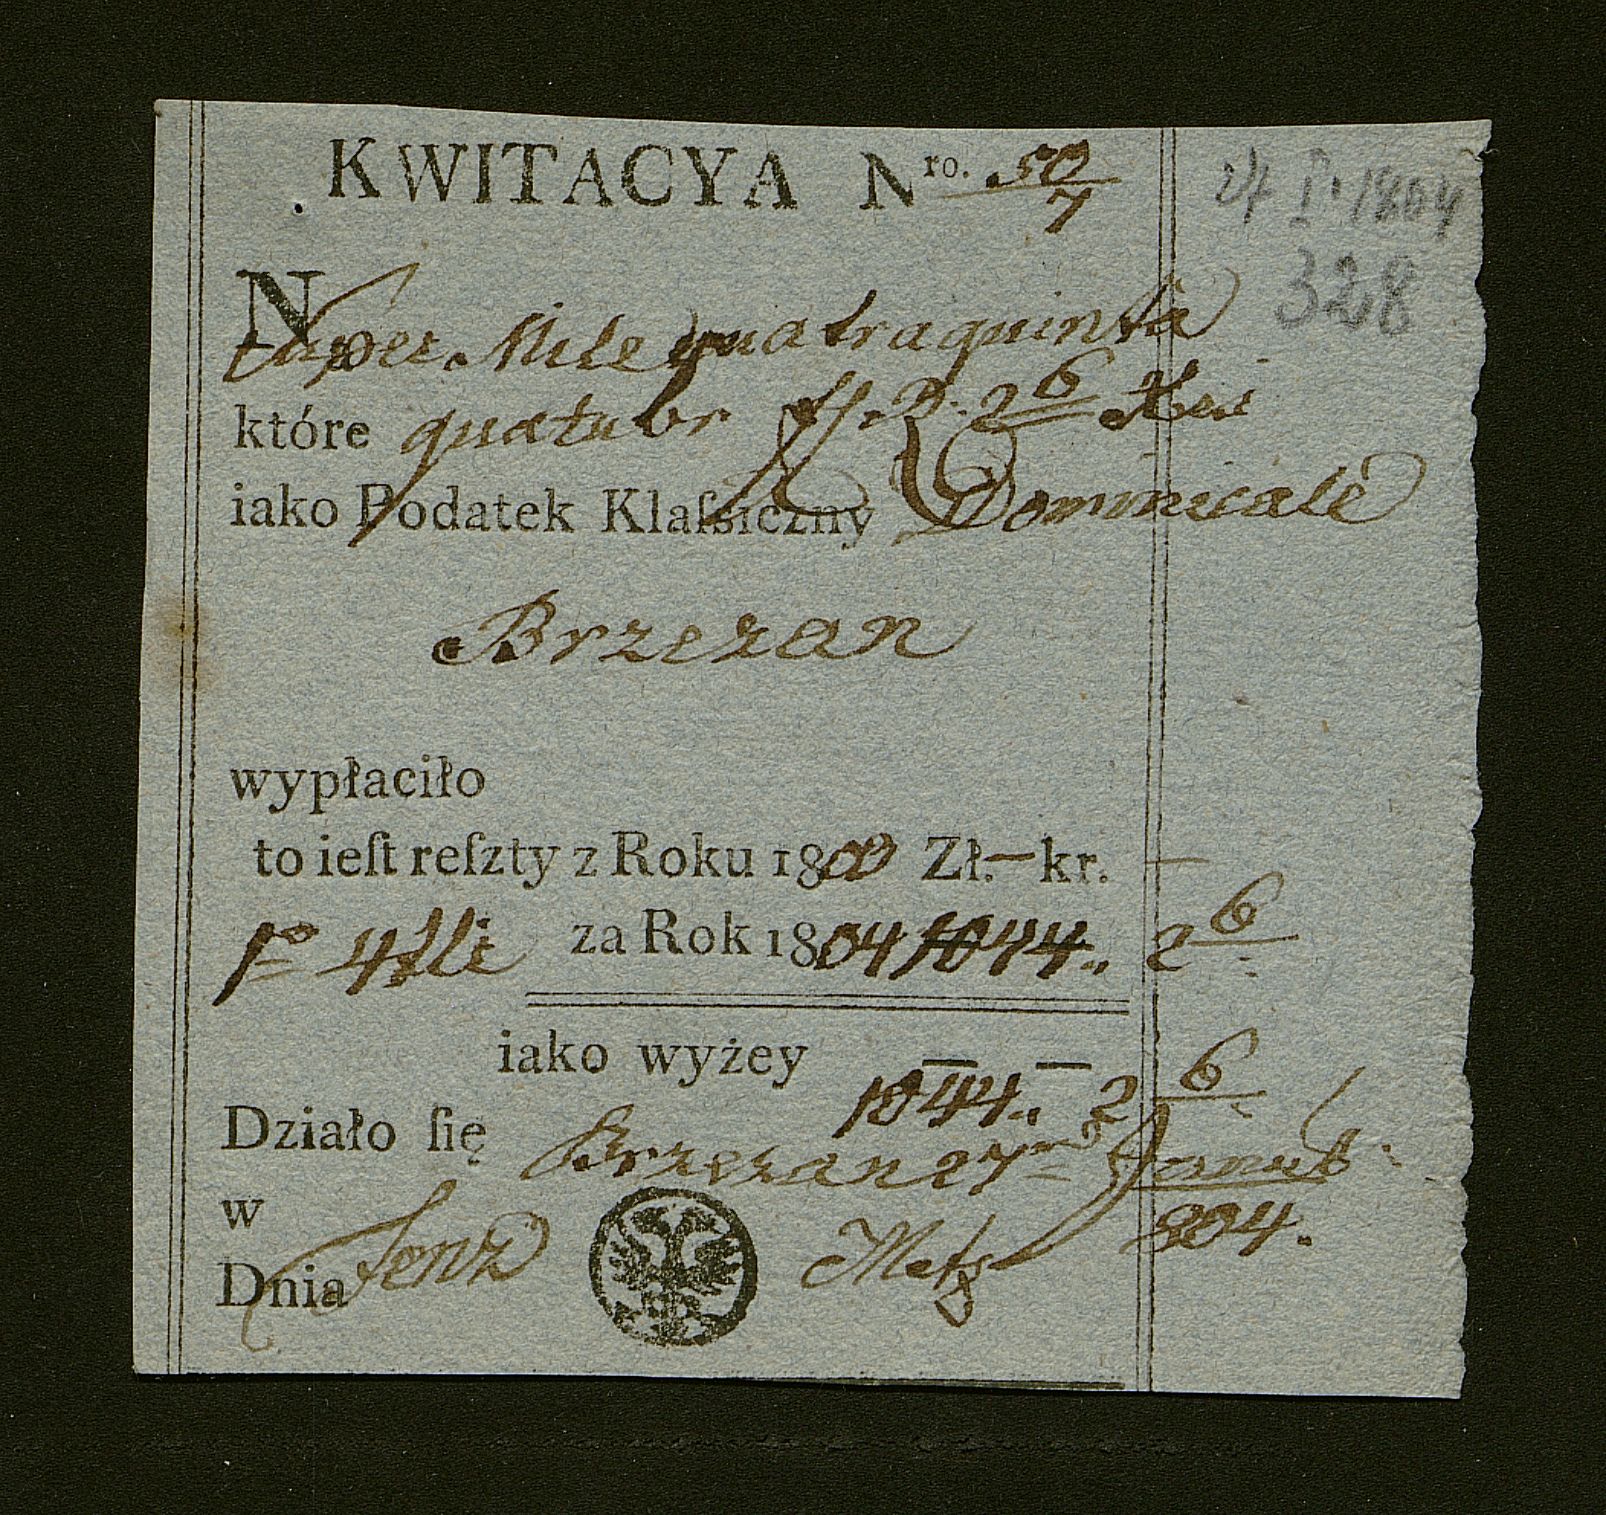 KWITACYA Nro. 50/7
27 I. 1804
328
N
Super Mile quatraquinta
które quatuor fl. R. 2 6
iako Podatek Klaſsiczny Dominicale
Brzezan
wypłaciło
to ieſt reſzty z Roku 1800 Zł. — kr. —
za Rok 1804 1044.. 2 6
iako wyżey — —
1044.. 2 6
Działo ſię Brzezan 27 Janua
w 804.
Dnia